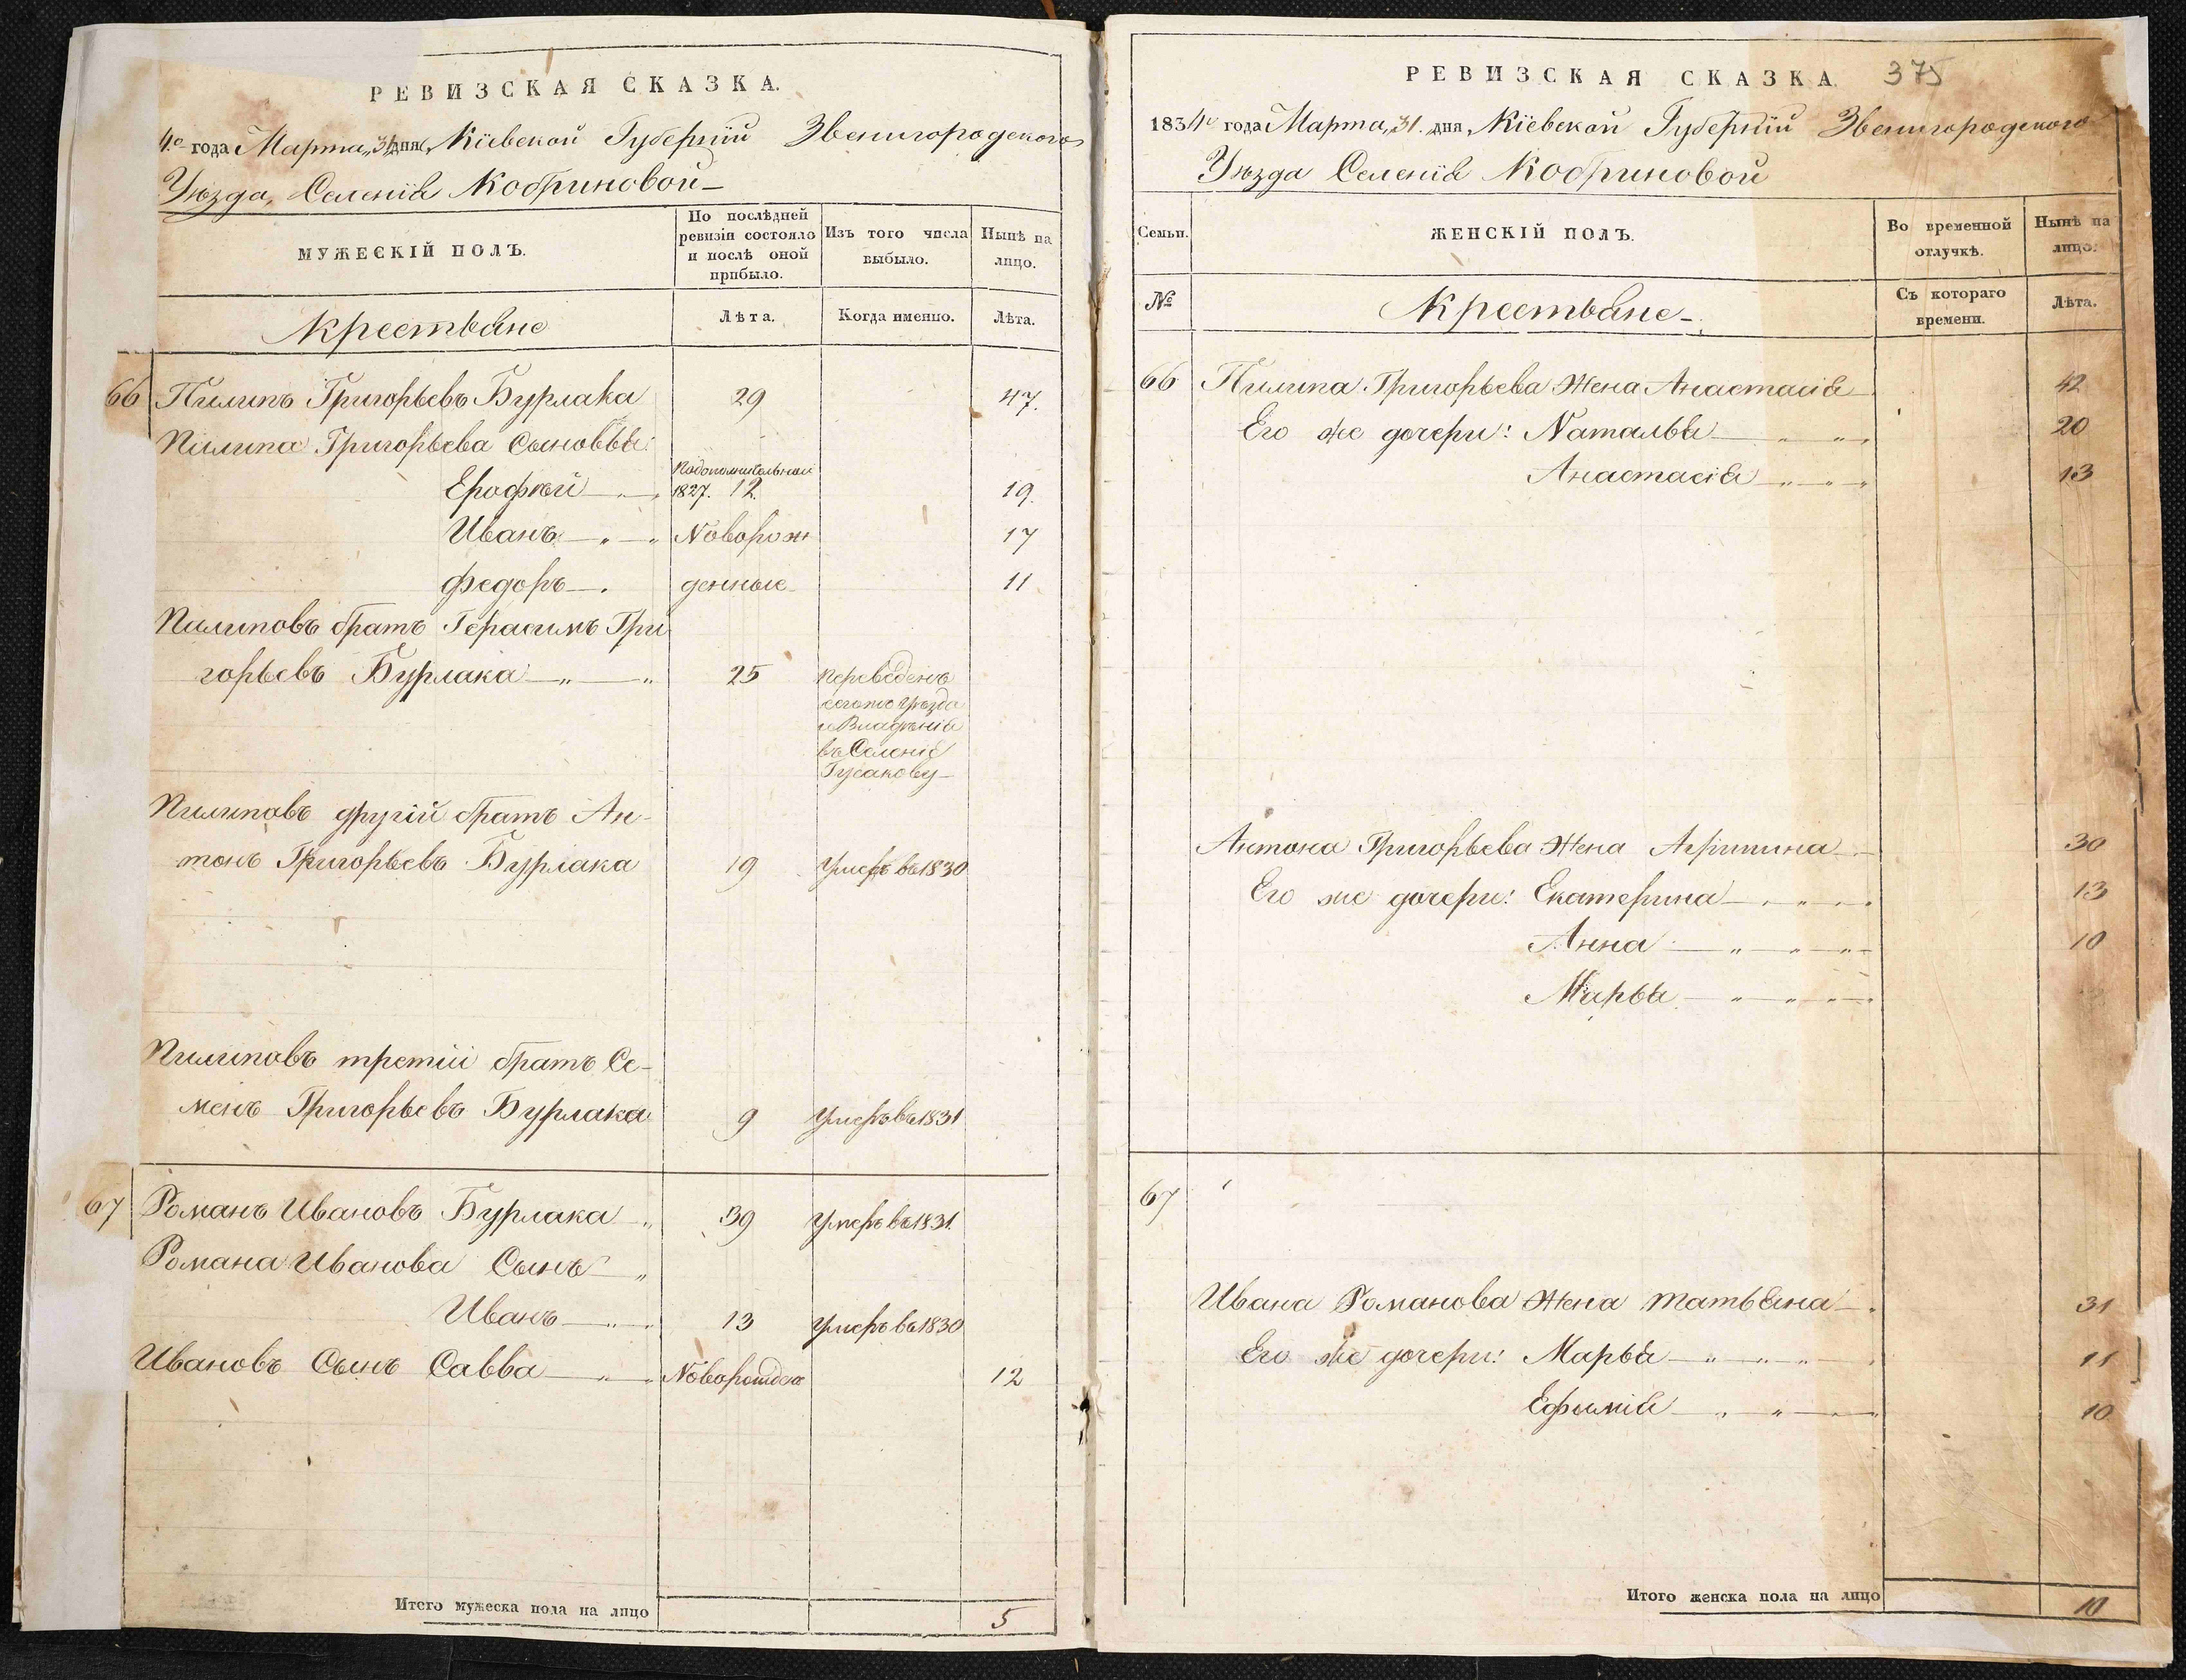 РЕВИЗСКАЯ СКАЗКА.
4го года Марта „31 дня, Кіевской Губерніи Звенигородского
Уѣзда, Селенія Кобриновой
МУЖЕСКІЙ ПОЛЪ.
По послѣдней ревизіи состояло и послѣ оной прибыло.
Изъ того числа выбыло.
Нынѣ на лицо.
Крестьяне
Лѣта.
Когда именно.
Лѣта.
66 Пилипъ Григорьевъ Бурлака 29 47.
Пилипа Григорьева Сыновья:
Ерофѣй 1827. 12. 19.
Иванъ Новорож 17
Федоръ денные 11
Пилиповъ братъ Герасимъ Гри
горьевъ Бурлака 25 Переведенъ
сего же уѣзда
и Владѣнія
въ Селеніе
Гусакову
Пилиповъ другій братъ Ан-
тонъ Григорьевъ Бурлака 19 Умеръ въ 1830
Пилиповъ третій братъ Се-
менъ Григорьевъ Бурлака 9 Умеръ въ 1831
67 Романъ Ивановъ Бурлака 39 Умеръ въ 1831.
Романа Иванова Сынъ
Иванъ 13 Умеръ въ 1830
Ивановъ Сынъ Савва Новорожден 12
Итого мужеска пола на лицо 5
РЕВИЗСКАЯ СКАЗКА. 375
1834го года Марта „31. дня, Кіевской Губерніи Звенигородского
Уѣзда Селенія Кобриновой
Семьи.
ЖЕНСКІЙ ПОЛЪ.
Во временной отлучкѣ.
Нынѣ на лицо.
№
Крестьяне
Съ котораго времени.
Лѣта.
66 Пилипа Григорьева Жена Анастасія 42
Его же дочери: Наталья 20
Анастасія 13
Антона Григорьева Жена Агрипина 30
Его же дочери: Екатерина 13
Анна 10
Марья
67
Ивана Романова Жена Татьяна 31
Его же дочери: Марья 11
Ефимія 10
Итого женска пола на лицо 10